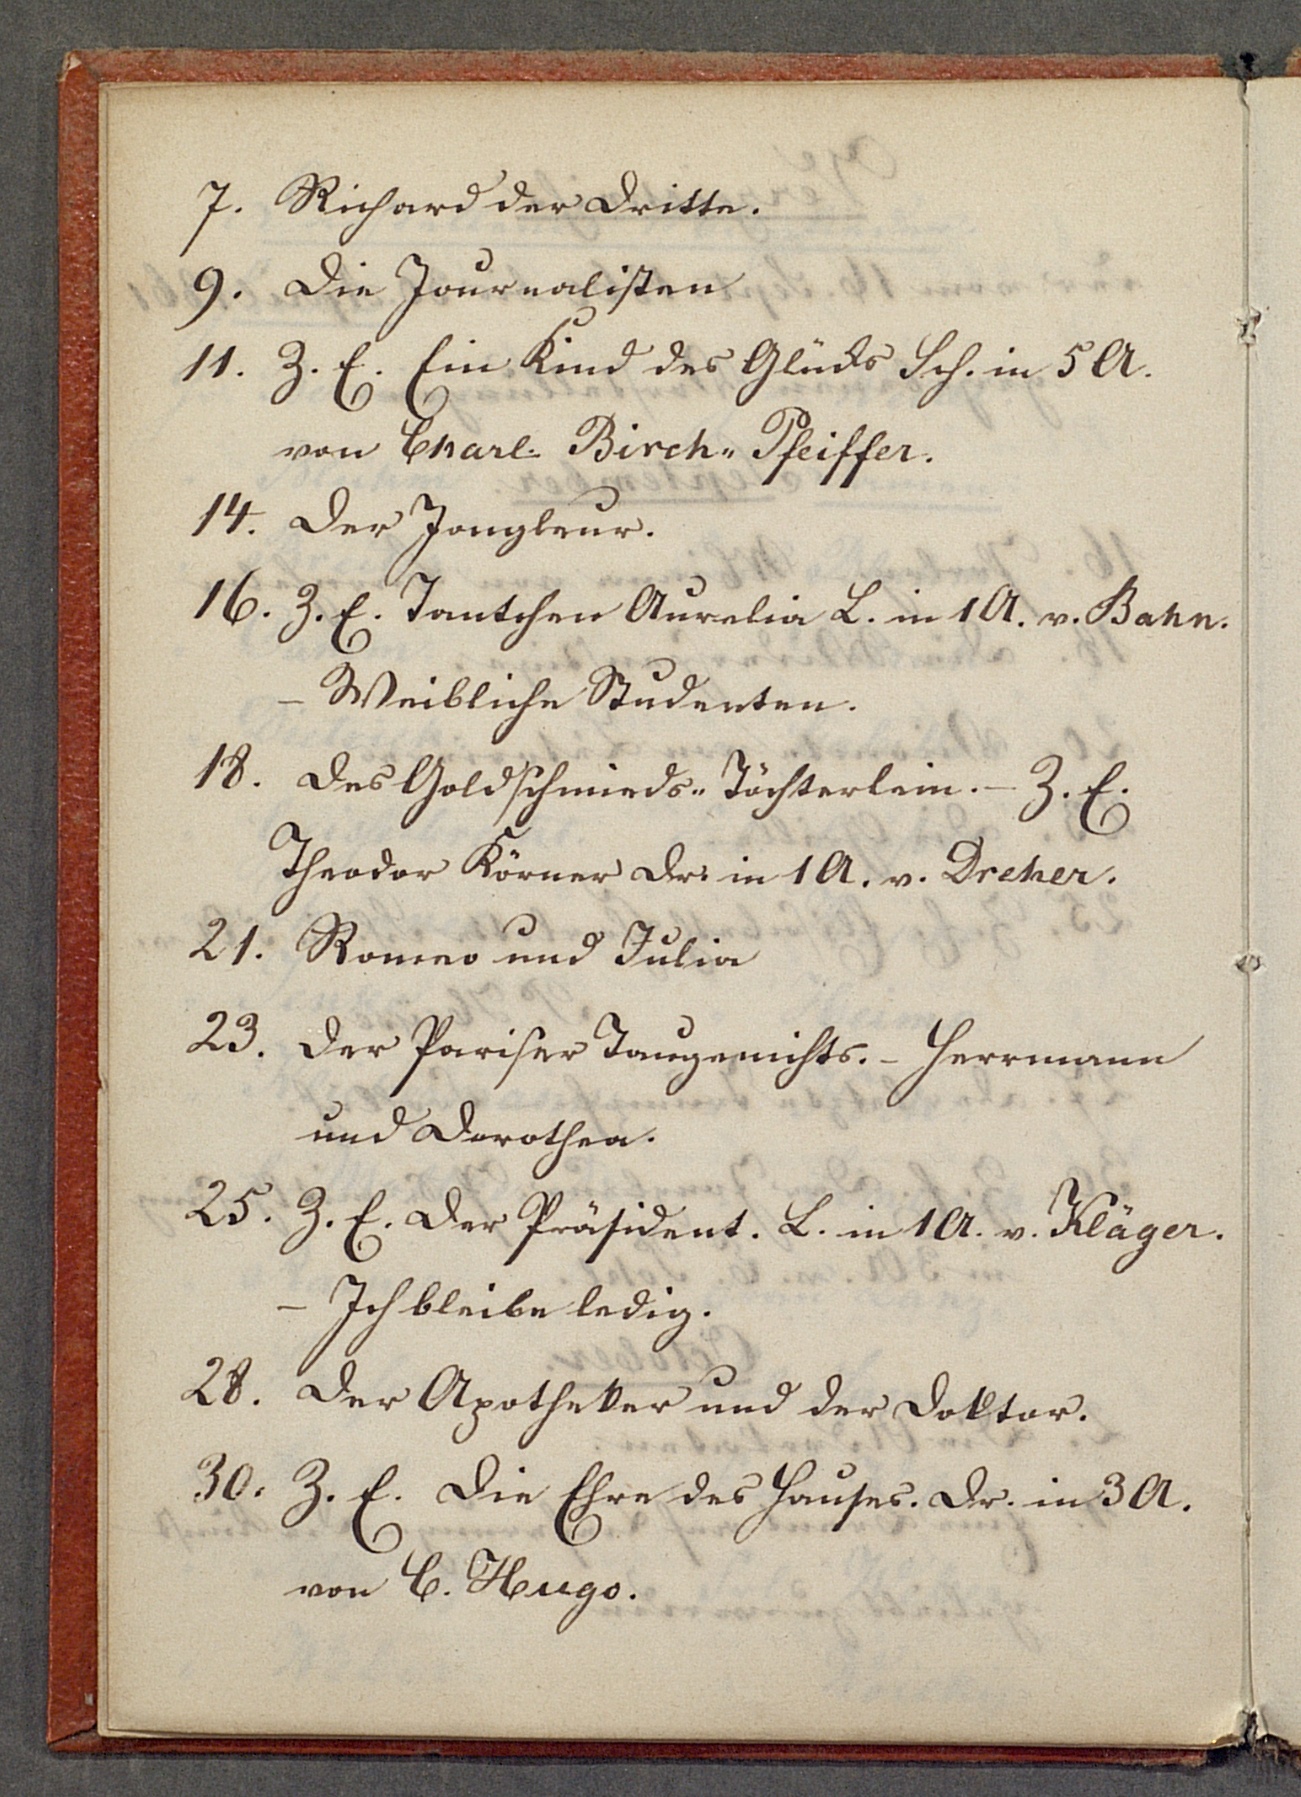 7. Richard der Dritte.
9. Die Journalisten
11. Z. E. Ein Kind des Glücks Sch. in 5 A.
von Charl. Birch-Pfeiffer.
14. Der Jongleur.
16. Z. E. Tantchen Aurelia L. in 1 A. v. Bahn.
– Weibliche Studenten.
18. Des Goldschmieds-Töchterlein. – Z. E.
Theodor Körner Dr. in 1 A. v. Dreher.
21. Romeo und Julia
23. Der Pariser Taugenichts. – Herrmann
und Dorothea.
25. Z. E. Der Präsident. L. in 1 A. v. Kläger.
– Ich bleibe ledig.
28. Der Apotheker und der Doktor.
30. Z. E. Die Ehre des Hauses. Dr. in 3 A.
von C. Hugo.